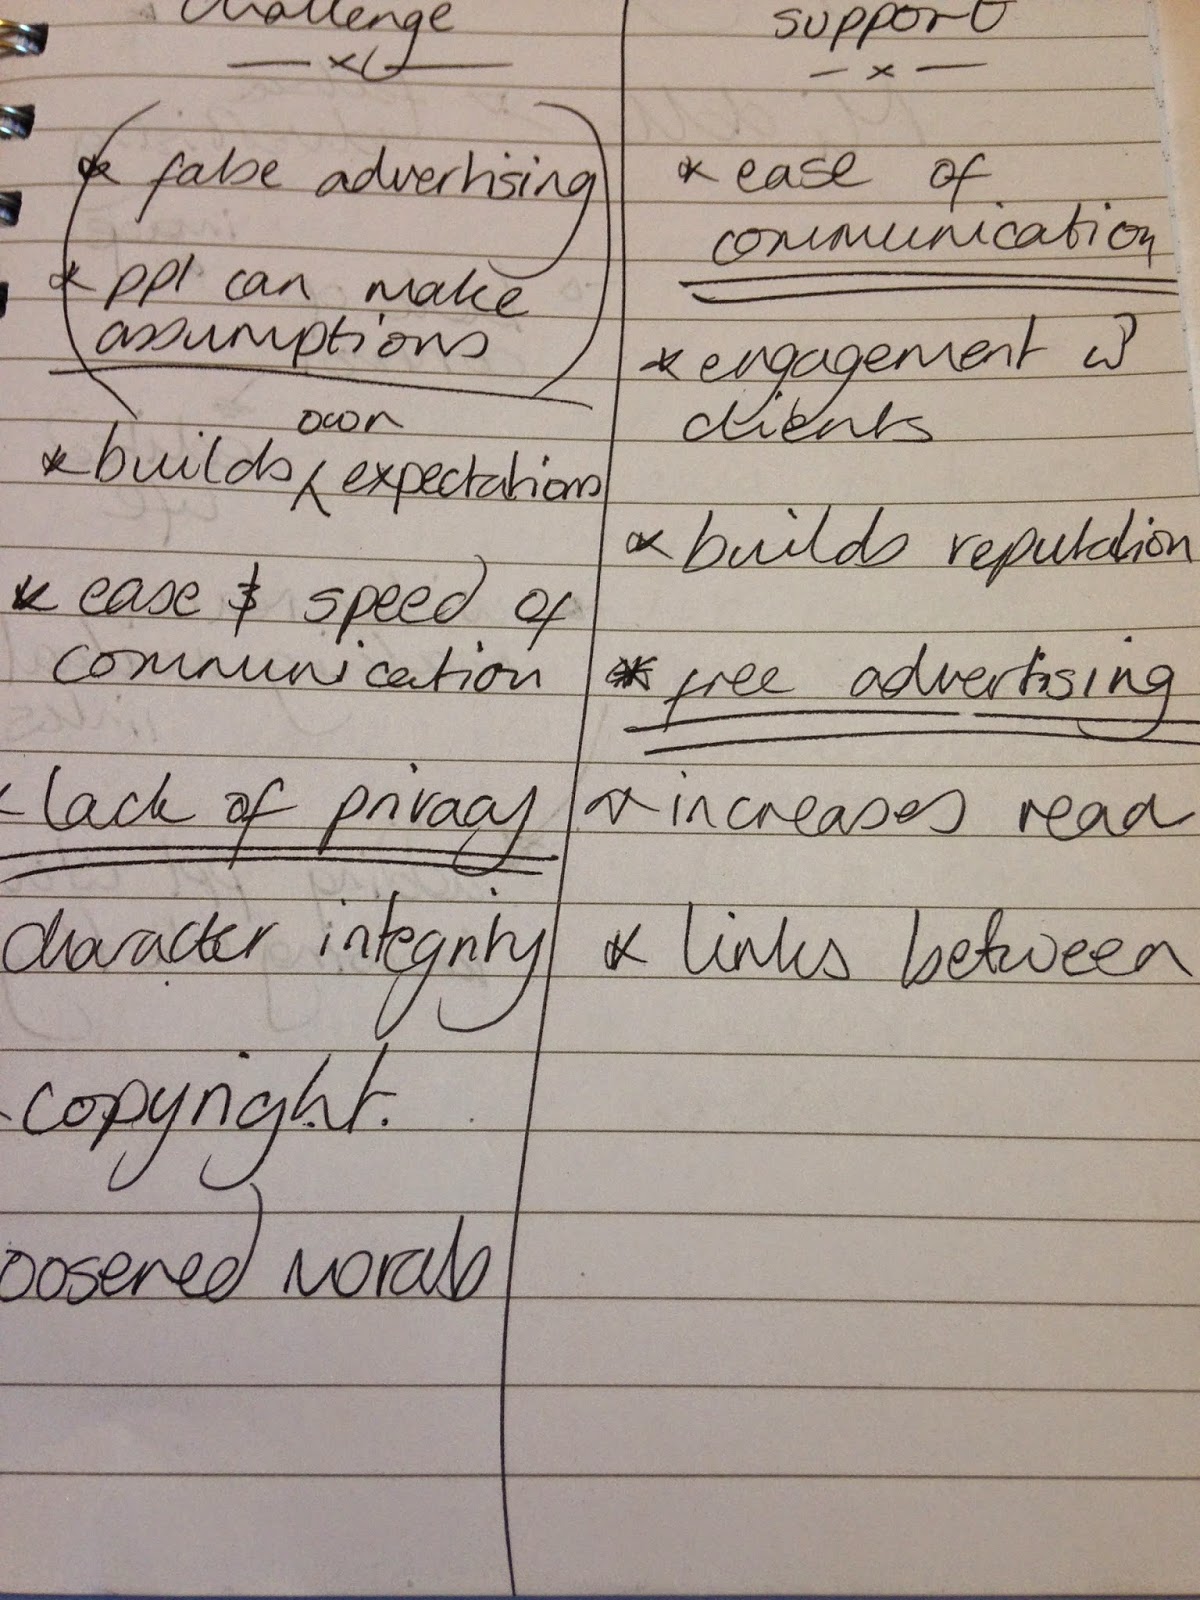 challenge
* false advertising
* ppl can make
assumptions
* builds own expectations
* ease & speed of
communication
* lack of privacy
character integrity
copyright.
oosened morals
support
* ease of
communication
* engagement w
clients
* builds reputation
* free advertising
* increases read
* links between